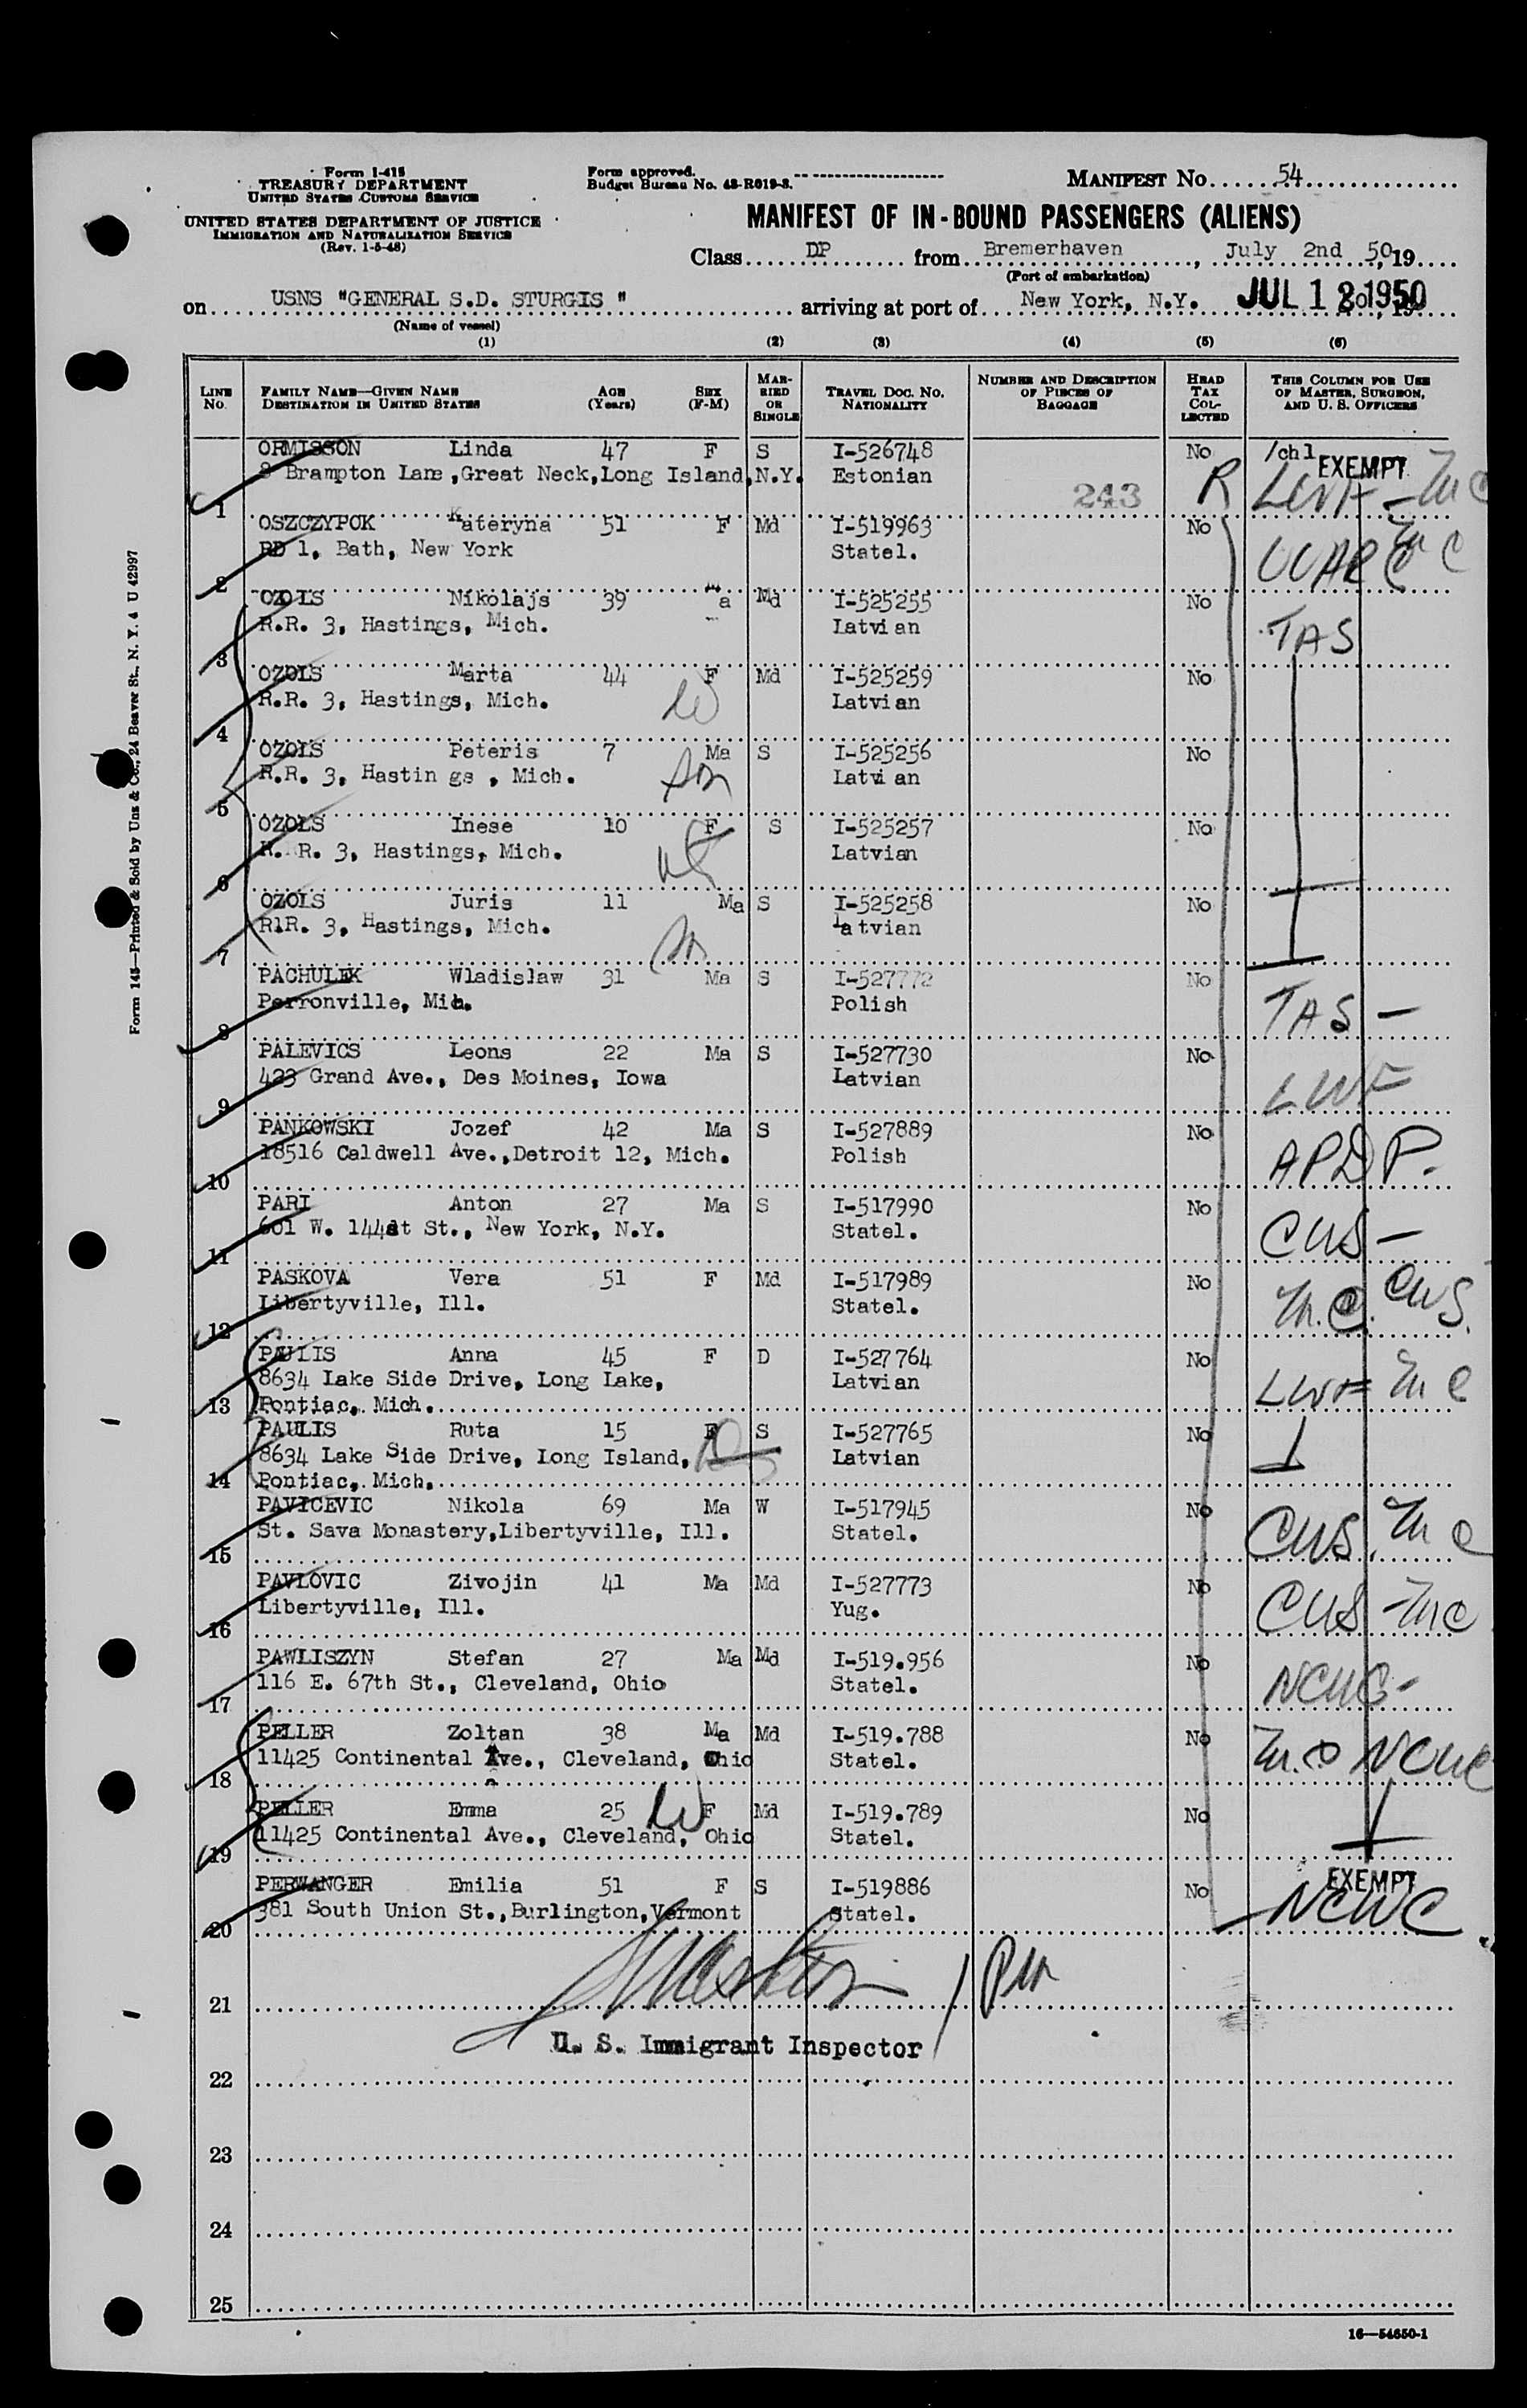 Form I-415
TREASURY DEPARTMENT
UNITED STATES CUSTOMS SERVICE
UNITED STATES DEPARTMENT OF JUSTICE
IMMIGRATION AND NATURALIZATION SERVICE
(Rev. 1-5-48)
Form approved.
Budget Bureau No. 43-R019-3.
MANIFEST No. 54
MANIFEST OF IN-BOUND PASSENGERS (ALIENS)
Class DP from Bremerhaven, July 2nd 50, 19
(Port of embarkation)
on USNS "GENERAL S.D. STURGIS " arriving at port of New York, N.Y. JUL 12 1950
(Name of vessel)
(1) (2) (3) (4) (5) (6)
LINE No. FAMILY NAME—GIVEN NAME DESTINATION IN UNITED STATES AGE (Years) SEX (F-M) MARRIED OR SINGLE TRAVEL DOC. NO. NATIONALITY NUMBER AND DESCRIPTION OF PIECES OF BAGGAGE HEAD TAX COLLECTED THIS COLUMN FOR USE OF MASTER, SURGEON, AND U. S. OFFICERS
ORMISSON Linda 47 F S I-526748 No /chl EXEMPT
8 Brampton Lane ,Great Neck,Long Island,N.Y. Estonian
1 243 R LWF - Inc
OSZCZYPOK Kateryna 51 F Md I-519963 No
RD 1, Bath, New York Statel.
2
OZOLS Nikolajs 39 Ma Md I-525255 No
R.R. 3, Hastings, Mich. Latvian TAS
3
OZOLS Marta 44 F Md I-525259 No
R.R. 3, Hastings, Mich. W Latvian
4
OZOLS Peteris 7 Ma S I-525256 No
R.R. 3, Hastin gs , Mich. son Latvian
5
OZOLS Inese 10 F S I-525257 No
R. R. 3, Hastings, Mich. Latvian
6
OZOLS Juris 11 Ma S I-525258 No
R.R. 3, Hastings, Mich. son Latvian
7
PACHULEK Wladislaw 31 Ma S I-527772 No
Perronville, Mich. Polish TAS —
8
PALEVICS Leons 22 Ma S I-527730 No
423 Grand Ave., Des Moines, Iowa Latvian LWF
9
PANKOWSKI Jozef 42 Ma S I-527889 No
18516 Caldwell Ave.,Detroit 12, Mich. Polish APDP.
10
PARI Anton 27 Ma S I-517990 No
601 W. 144st St., New York, N.Y. Statel. CWS —
11
PASKOVA Vera 51 F Md I-517989 No
Libertyville, Ill. Statel. CWS.
12
PAULIS Anna 45 F D I-527764 No
8634 Lake Side Drive, Long Lake, Latvian LWF
13 Pontiac, Mich.
PAULIS Ruta 15 F S I-527765 No
8634 Lake Side Drive, Long Island, Latvian
14 Pontiac, Mich.
PAVICEVIC Nikola 69 Ma W I-517945 No
St. Sava Monastery,Libertyville, Ill. Statel. CWS
15
PAVLOVIC Zivojin 41 Ma Md I-527773 No
Libertyville, Ill. Yug. CWS
16
PAWLISZYN Stefan 27 Ma Md I-519.956 No
116 E. 67th St., Cleveland, Ohio Statel. NCWC -
17
PELLER Zoltan 38 Ma Md I-519.788 No
11425 Continental Ave., Cleveland, Ohio Statel. NCWC
18
PELLER Emma 25 W F Md I-519.789 No
11425 Continental Ave., Cleveland, Ohio Statel.
19
PERWANGER Emilia 51 F S I-519886 No EXEMPT
381 South Union St.,Burlington,Vermont Statel. NCWC
20
21
U. S. Immigrant Inspector
22
23
24
25
16—54650-1
Form 145—Printed & Sold by Unz & Co., 24 Beaver St., N. Y. 4 U 42997